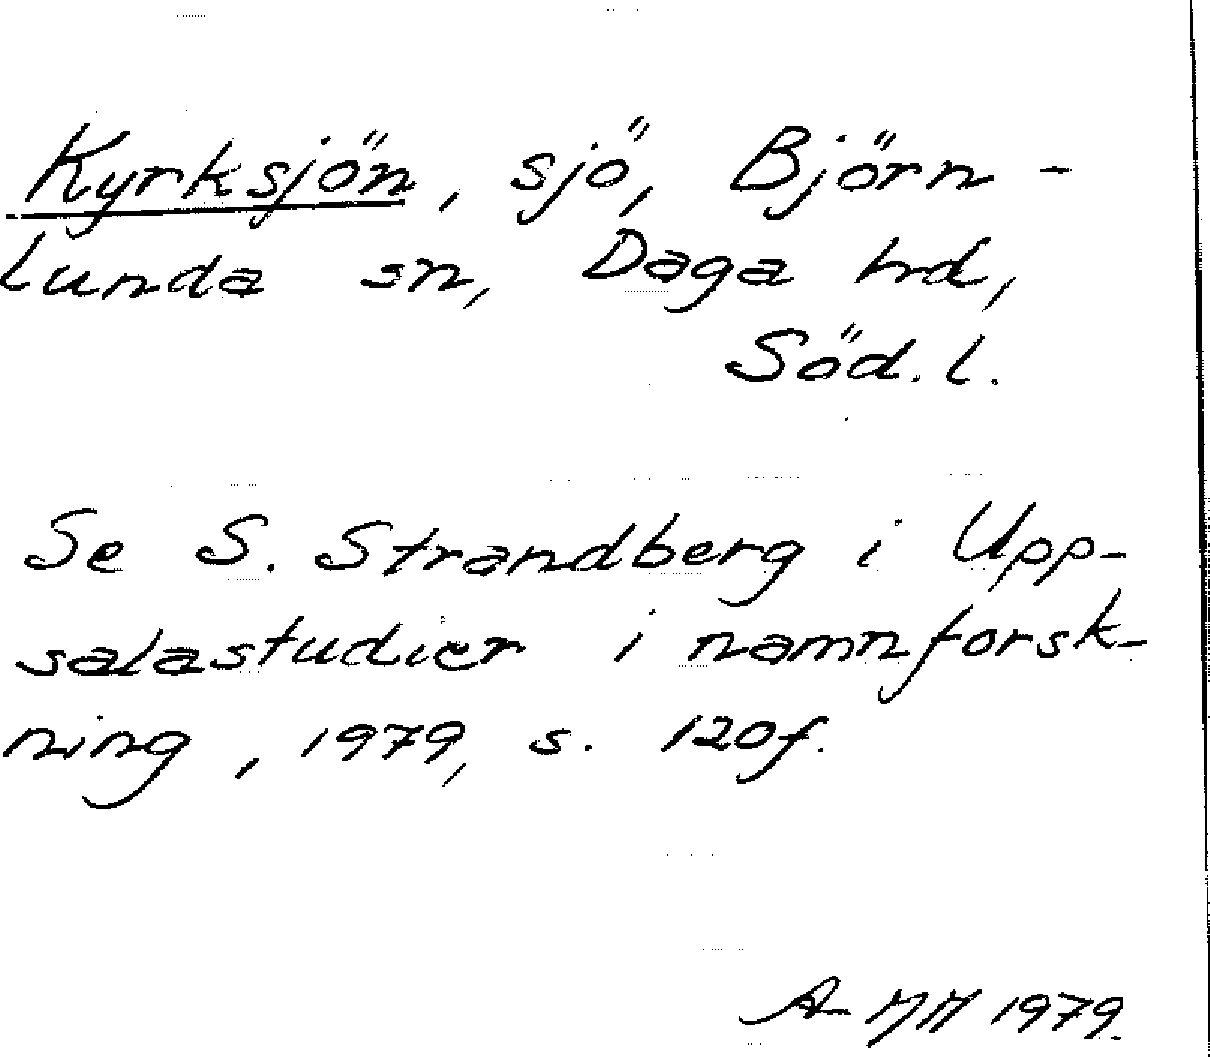 Kyrksjön, sjö, Björn-
lunda sn, Daga hd,
Söd. l.
Se S. Strandberg i Upp-
salastudier i namnforsk-
ning, 1979, s. 120f.
A-MH 1979.